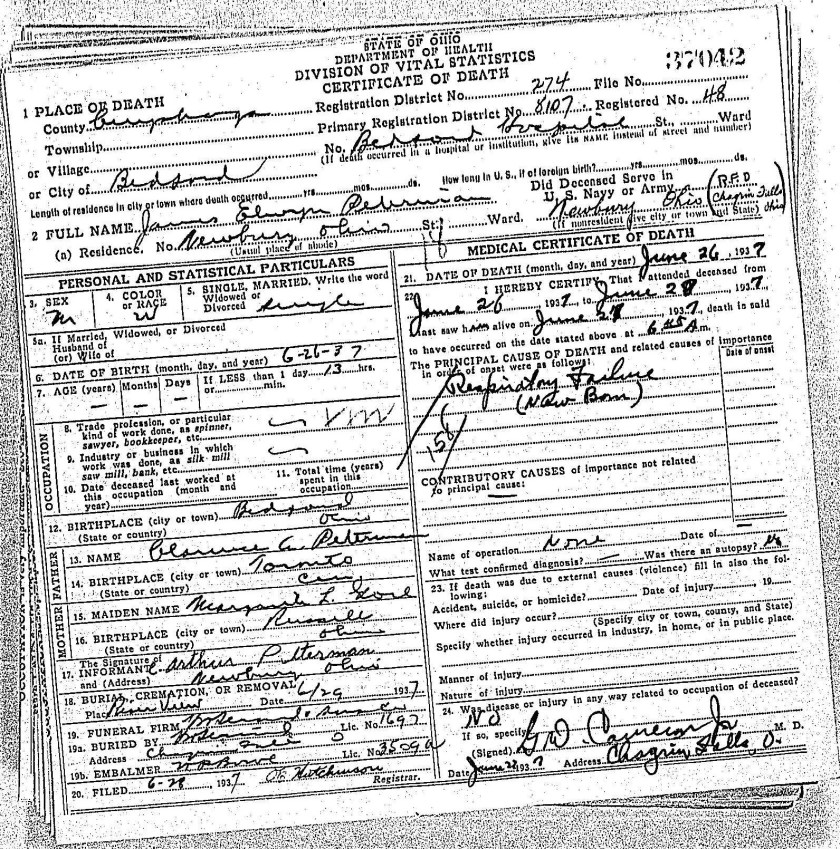 STATE OF OHIO
DEPARTMENT OF HEALTH
DIVISION OF VITAL STATISTICS
CERTIFICATE OF DEATH
37042
1 PLACE OF DEATH
County Cuyahoga Registration District No. 274 File No.
Township Primary Registration District No. 8107 Registered No. 48
or Village No. Bedford Hospital St., Ward
(If death occurred in a hospital or institution, give its NAME instead of street and number)
or City of Bedford
Length of residence in city or town where death occurred yrs. mos. ds. How long in U. S., if of foreign birth? yrs. mos. ds.
2 FULL NAME James Elwyn Peterman Did Deceased Serve in U. S. Navy or Army
(a) Residence. No. Newbury Ohio St. Ward. Newbury Ohio (R.F.D Chagrin Falls Ohio)
(Usual place of abode) (If nonresident give city or town and State)
PERSONAL AND STATISTICAL PARTICULARS
3. SEX M
4. COLOR or RACE W
5. SINGLE, MARRIED, Widowed or Divorced Write the word single
5a. If Married, Widowed, or Divorced
Husband of
(or) Wife of
6. DATE OF BIRTH (month, day, and year) 6-26-37
7. AGE (years) Months Days If LESS than 1 day 13 hrs.
— — — or min.
OCCUPATION
8. Trade profession, or particular
kind of work done, as spinner,
sawyer, bookkeeper, etc.
9. Industry or business in which
work was done, as silk mill
saw mill, bank, etc.
10. Date deceased last worked at
this occupation (month and
year)
11. Total time (years)
spent in this
occupation
12. BIRTHPLACE (city or town) Bedford
(State or country) Ohio
FATHER
13. NAME Clarence A. Peterman
14. BIRTHPLACE (city or town) Toronto
(State or country)
MOTHER
15. MAIDEN NAME Margaret L.
16. BIRTHPLACE (city or town) Russell
(State or country) Ohio
17. The Signature of
INFORMANT C. Arthur Peterman
and (Address) Newbury Ohio
18. BURIAL, CREMATION, OR REMOVAL
Place Date 6/29 1937
19. FUNERAL FIRM
19a. BURIED BY Lic. No. 1697
Address
19b. EMBALMER Lic. No. 3509a
20. FILED 6-28, 1937 Hutchinson Registrar.
MEDICAL CERTIFICATE OF DEATH
21. DATE OF DEATH (month, day, and year) June 26, 1937
22. I HEREBY CERTIFY, That I attended deceased from
June 26, 1937, to June 27, 1937,
I last saw him alive on June 27, 1937, death is said
to have occurred on the date stated above at 6 45 A m.
The PRINCIPAL CAUSE OF DEATH and related causes of importance
in order of onset were as follows:
Date of onset
Respiratory Failure
(New Born)
158
CONTRIBUTORY CAUSES of importance not related
to principal cause:
Name of operation None Date of —
What test confirmed diagnosis? — Was there an autopsy? No
23. If death was due to external causes (violence) fill in also the following:
Accident, suicide, or homicide? Date of injury 19
Where did injury occur?
(Specify city or town, county, and State)
Specify whether injury occurred in industry, in home, or in public place.
Manner of Injury
Nature of injury
24. Was disease or injury in any way related to occupation of deceased?
No
If so, specify
(Signed) G W Cameron Jr M. D.
Date June 28 1937 Address Chagrin Falls, O.